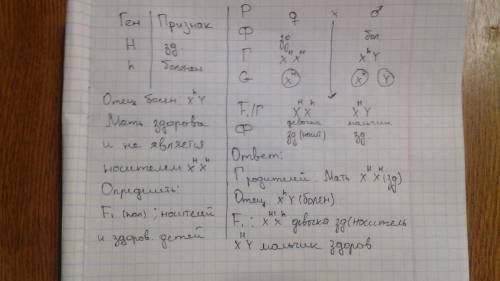 Ген Признак
H зд.
h болезнь
Отец болен X^h Y
Мать здорова
и не является
носителем X^H X^H
Определить:
F₁ (пок) ; носителей
и здоров. детей
P ♀ x ♂
Ф зд бол
Г X^H X^H X^h Y
G X^H X^h Y
F₁/Г X^H X^h X^H Y
девочка мальчик
Ф зд (носит) зд
Ответ:
Г родителей. Мать X^H X^H (зд)
Отец X^h Y (болен)
F₁: X^H X^h девочка зд (носитель
X^H Y мальчик здоров